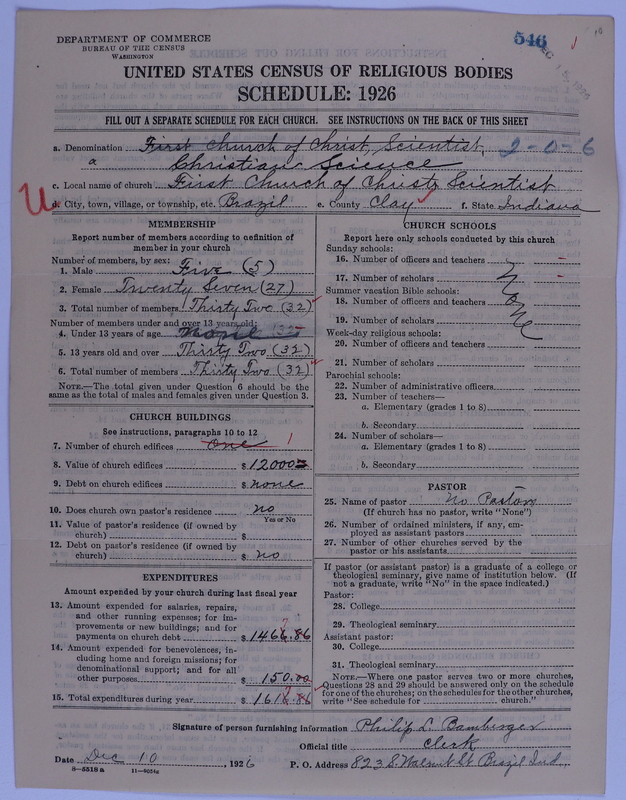 DEPARTMENT OF COMMERCE
BUREAU OF THE CENSUS
WASHINGTON
546
UNITED STATES CENSUS OF RELIGIOUS BODIES
SCHEDULE: 1926
FILL OUT A SEPARATE SCHEDULE FOR EACH CHURCH. SEE INSTRUCTIONS ON THE BACK OF THIS SHEET
a. Denomination First Church of Christ, Scientist, 2-0-6
Christian Science
c. Local name of church First Church of Christ, Scientist
d. City, town, village, or township, etc. Brazil e. County Clay f. State Indiana
MEMBERSHIP
Report number of members according to definition of
member in your church
Number of members, by sex:
1. Male Five (5)
2. Female Twenty Seven (27)
3. Total number of members Thirty Two (32)
Number of members under and over 13 years old:
4. Under 13 years of age
5. 13 years old and over Thirty Two (32)
6. Total number of members Thirty Two (32)
NOTE.—The total given under Question 6 should be the
same as the total of males and females given under Question 3.
CHURCH BUILDINGS
See instructions, paragraphs 10 to 12
7. Number of church edifices One 1
8. Value of church edifices $ 12000
9. Debt on church edifices $ none
10. Does church own pastor's residence no
Yes or No
11. Value of pastor's residence (if owned by
church) $
12. Debt on pastor's residence (if owned by
church) $ no
EXPENDITURES
Amount expended by your church during last fiscal year
13. Amount expended for salaries, repairs,
and other running expenses; for im-
provements or new buildings; and for
payments on church debt $ 1466.86
14. Amount expended for benevolences, in-
cluding home and foreign missions; for
denominational support; and for all
other purposes $ 150.00
15. Total expenditures during year $ 1616.86
CHURCH SCHOOLS
Report here only schools conducted by this church
Sunday schools:
16. Number of officers and teachers
17. Number of scholars
Summer vacation Bible schools:
18. Number of officers and teachers
19. Number of scholars
None
Week-day religious schools:
20. Number of officers and teachers
21. Number of scholars
Parochial schools:
22. Number of administrative officers
23. Number of teachers—
a. Elementary (grades 1 to 8)
b. Secondary
24. Number of scholars—
a. Elementary (grades 1 to 8)
b. Secondary
PASTOR
25. Name of pastor No Pastor
(If church has no pastor, write "None")
26. Number of ordained ministers, if any, em-
ployed as assistant pastors
27. Number of other churches served by the
pastor or his assistants
If pastor (or assistant pastor) is a graduate of a college or
theological seminary, give name of institution below. (If
not a graduate, write "No" in the space indicated.)
Pastor:
28. College
29. Theological seminary
Assistant pastor:
30. College
31. Theological seminary
NOTE.—Where one pastor serves two or more churches,
Questions 28 and 29 should be answered only on the schedule
for one of the churches; on the schedules for the other churches,
write "See schedule for church."
Signature of person furnishing information Philip L. Bamberger
Official title Clerk
Date Dec 10, 1926 P. O. Address 823 S. Walnut St Brazil Ind.
8-5518a 11-9034a